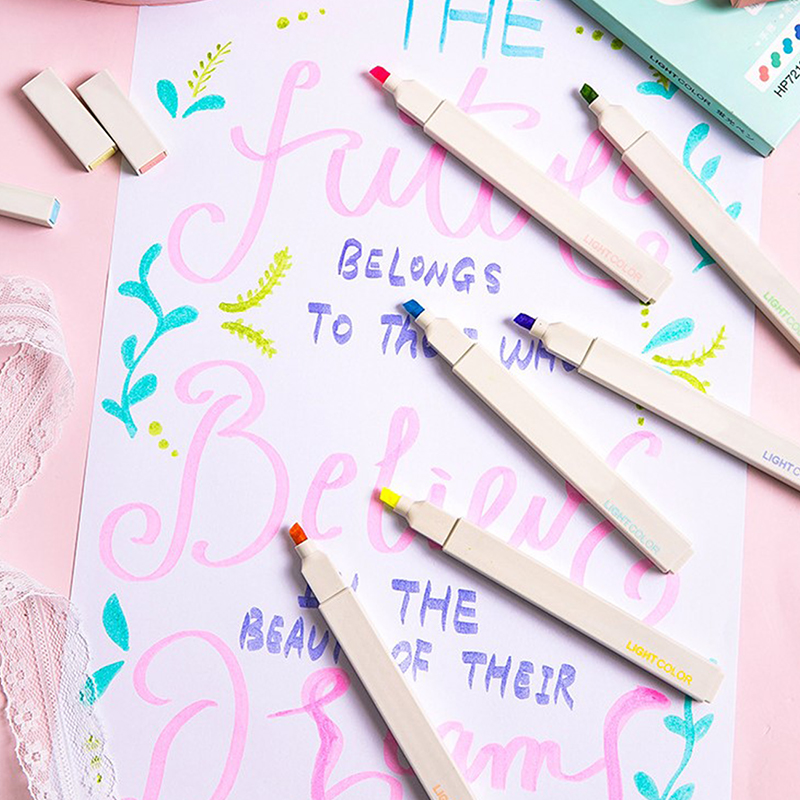 THE
Future
BELONGS
TO Those WHO
Believe
IN THE
BEAUTY OF THEIR
Dreams
LIGHTCOLOR
LIGHTCOLOR
LIGHTCOLOR
LIGHTCOLOR
LIGHTCOLOR
LIGHTCOLOR
HP721